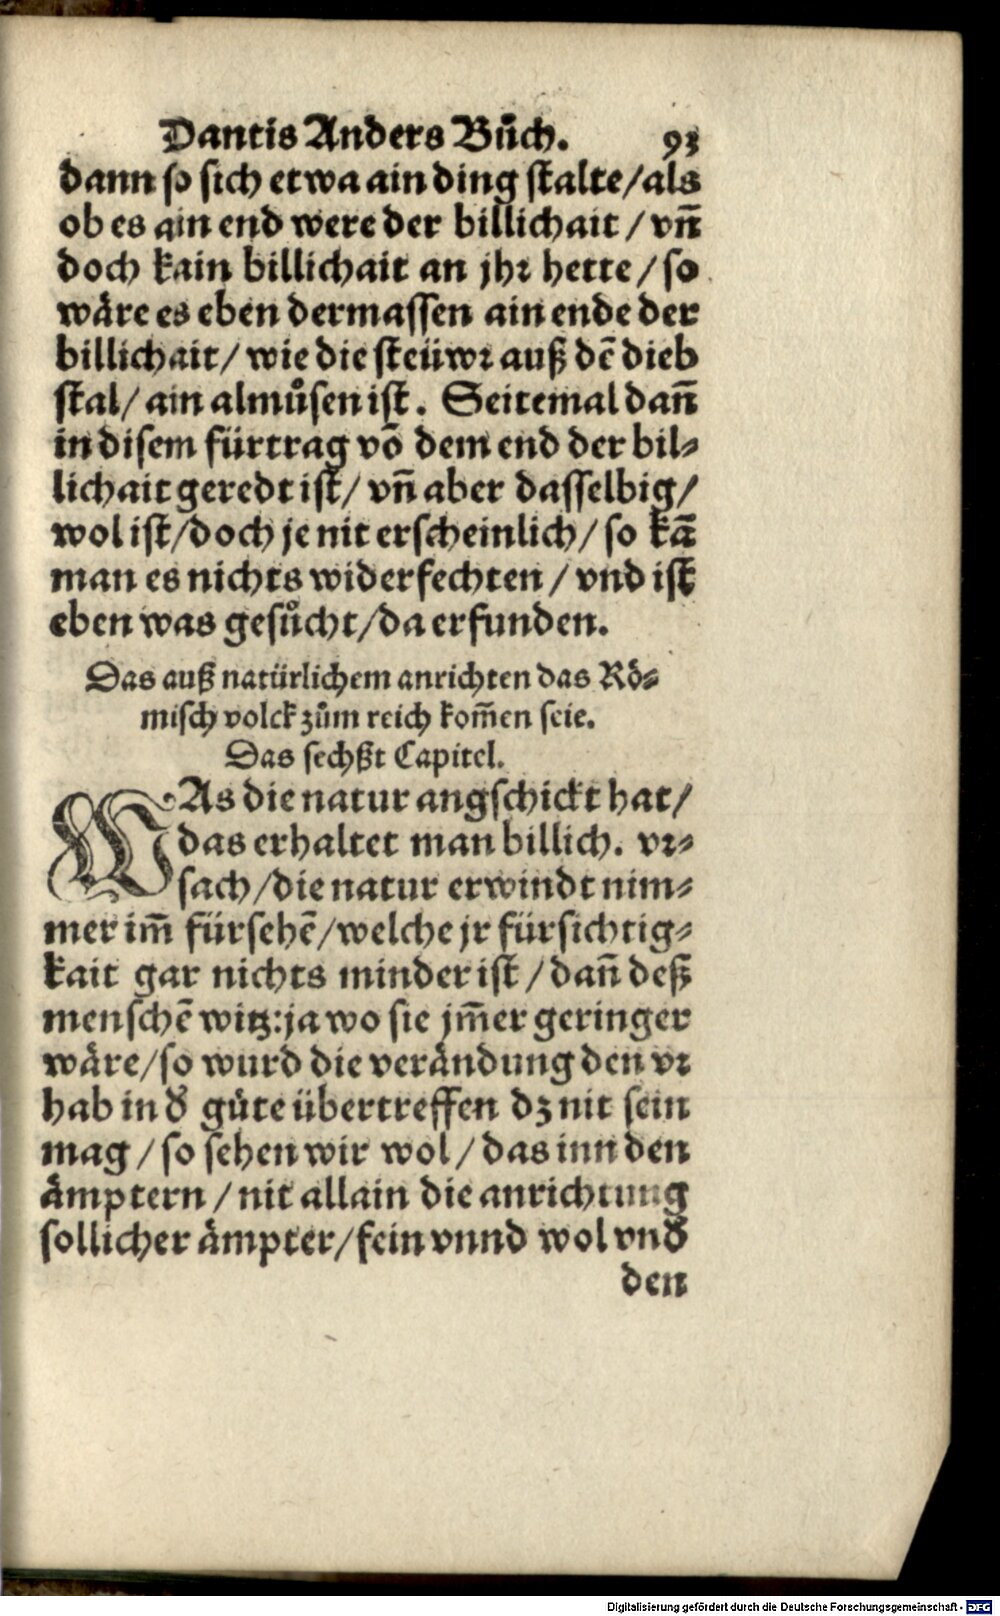 Dantis Anders Bůch. 93
dann so sich etwa ain ding stalte/als
ob es ain end were der billichait / vñ
doch kain billichait an jhr hette / so
wäre es eben dermassen ain ende der
billichait/ wie die steüwr auß dẽ dieb
stal/ ain almůsen ist. Seitemal dañ
in disem fürtrag võ dem end der bil⸗
lichait geredt ist/ vñ aber dasselbig/
wol ist/doch je nit erscheinlich/ so kã
man es nichts widerfechten / vnd ist
eben was gesůcht/da erfunden.
Das auß natürlichem anrichten das Rö⸗
misch volck zům reich kom̃en seie.
Das sechßt Capitel.
WAs die natur angschickt hat/
das erhaltet man billich. vr⸗
sach/die natur erwindt nim⸗
mer im̃ fürsehẽ/welche jr fürsichtig⸗
kait gar nichts minder ist / dañ deß
menschẽ witz:ja wo sie jm̃er geringer
wäre/so wurd die verändung den vr
hab in d̕ güte übertreffen dz nit sein
mag / so sehen wir wol / das inn den
ämptern / nit allain die anrichtung
sollicher ämpter/fein vnnd wol vnd̕
den
Digitalisierung gefördert durch die Deutsche Forschungsgemeinschaft - DFG